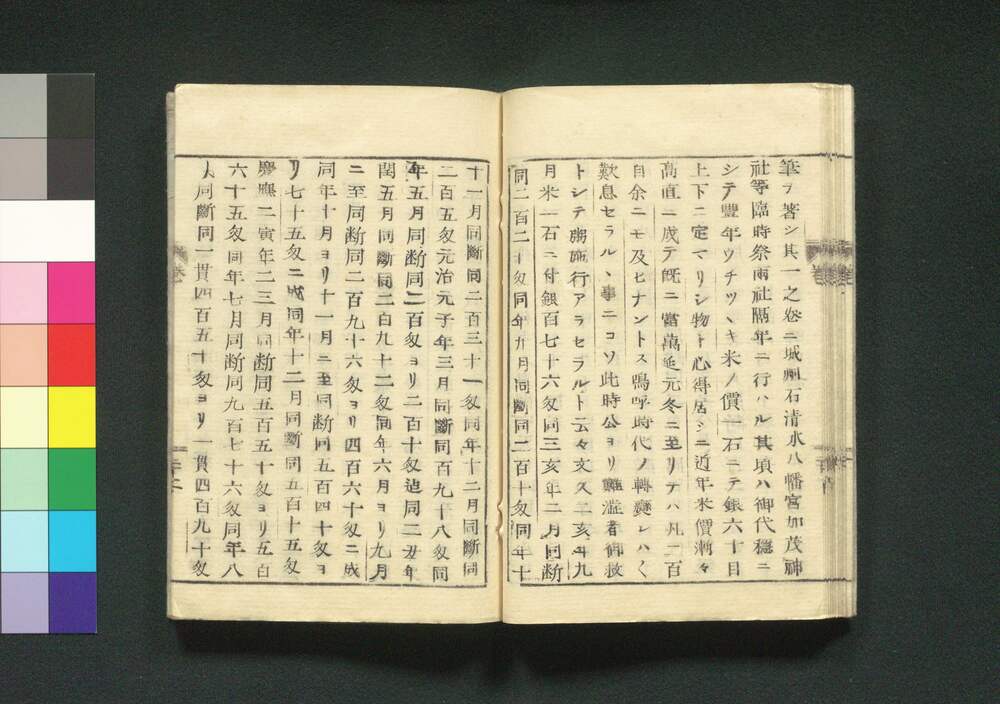 筆ヲ著シ其一之巻ニ城州石清水八幡宮加茂神
社等臨時祭両社隔年ニ行ハル其頃ハ御代穏ニ
シテ豊年ウチツヽキ米ノ價一石ニテ銀六十目
上下ニ定マリシ物ト心得居シニ近年米價漸々
高直ニ成テ既ニ當萬延元冬ニ至リテハ凡二百
目余ニモ及ヒナントス嗚呼時代ノ轉變レハく
歎息セラルヽ事ニコソ此時公ヨリ難澁者御救
トシテ賑施行アラセラルト云々文久二亥年九
月米一石ニ付銀百七十六匁同三亥年二月同断
同二百二十匁同年九月同断同二百十匁同年十
十一月同斷同二百三十一匁同年十二月同斷同
二百五匁元治元子年三月同斷同百九十八匁同
年五月同断同二百匁ヨリ二百十匁迠同二丑年
閏五月同斷同二百九十二匁同年六月ヨリ九月
ニ至同断同二百九十六匁ヨリ四百六十匁ニ成
同年十月ヨリ十一月ニ至同断同五百四十匁ヨ
リ七十五匁ニ成同年十二月同斷同五百十五匁
慶應二寅年二三月同断同五百五十匁ヨリ五百
六十五匁同年七月同断同九百七十六匁同年八
月同斷同一貫四百五十匁ヨリ一貫四百九十匁